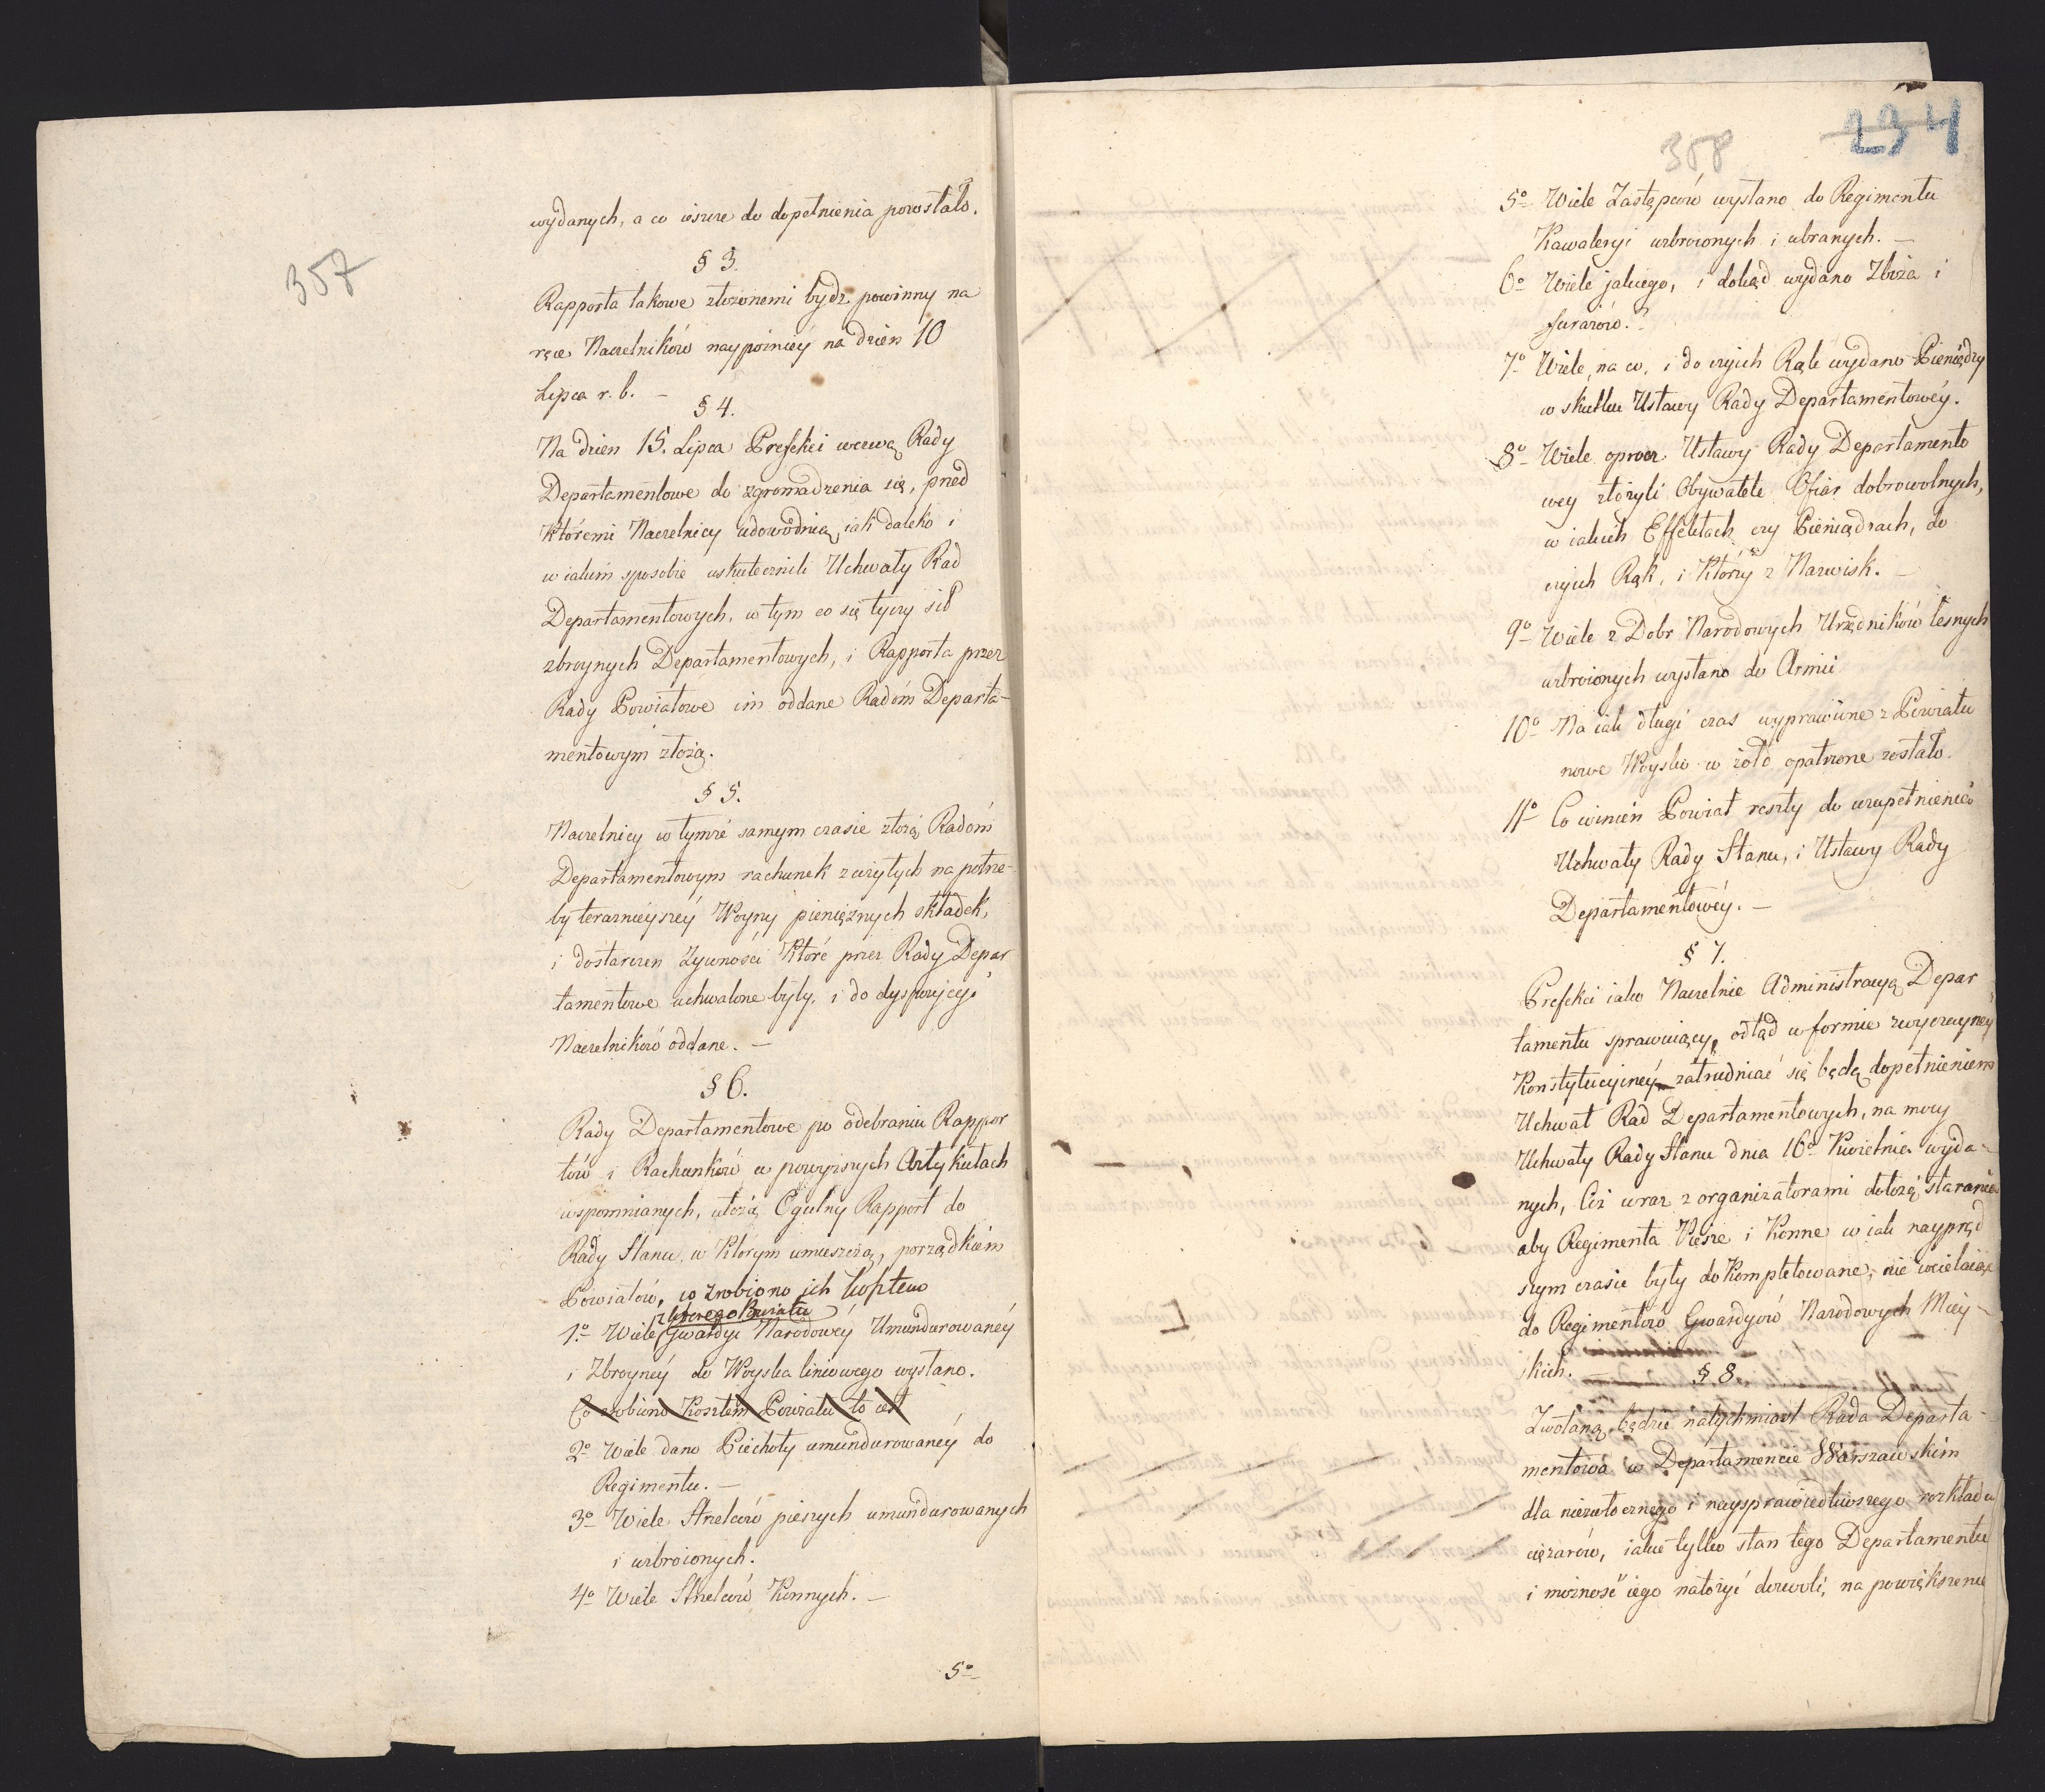 357
wydanych, a co ieszcze do dopełnienia pozostało.
§ 3.
Rapporta takowe złożonemi bydź powinny na
ręce Naczelników naypóźniéy na dzień 10
Lipca r. b. –
§ 4.
Na dzien 15. Lipca Prefekci wezwą Rady
Departamentowe do zgromadzenia się, przed
któremi Naczelnicy udowodnią, iak daleko i
w iakim sposobie uskutecznili Uchwały Rad
Departamentowych, w tym co się tyczy sił
zbroynych Departamentowych, i Rapporta przez
Rady Powiatowe im oddane Radóm Departa-
mentowym złożą.
§ 5.
Naczelnicy w tymże samym czasie złożą Radóm
Departamentowym rachunek z użytych na potrze-
by teraznieyszéy Woyny pieniężnych składek,
i dostarczeń Zywności które przez Rady Depar
tamentowe uchwalone były, i do dyspozycyi
Naczelników oddane. –
§ 6.
Rady Departamentowe po odebraniu Rappor
tów i Rachunków w powyższych Artykułach
wspomnianych, ułożą Ogulny Rapport do
Rady Stanu, w którym umieszczą, porządkiem
Powiatów, co zrobiono ich kosztem
z którego Powiatu
1.° Wiele Gwardyi Narodowéy Umundurowanéy
i Zbroynéy do Woyska liniowego wysłano.
Co zrobiono Kosztem Powiatu to iest
2° Wiele dano Piechoty umundurowanéy do
Regimentu. –
3° Wiele Strzelców pieszych umundurowanych
i uzbroionych.
4° Wiele Strzelców Konnych. –
5°
234
358
5° Wiele Zastępców wysłano do Regimentu
Kawaleryi uzbroionych i ubranych. –
6° Wiele jakiego, i dokąd wydano Zboża i
furażów.
7° Wiele, na co, i do czyich Rąk wydano Pieniędzy
w skutku Ustawy Rady Departamentowéy.
8° Wiele oprócz Ustawy Rady Departamento
wey złożyli Obywatele Ofiar dobrowolnych,
w iakich Effektach czy Pieniądzach, do
czyich Rąk, i którzy z Nazwisk. –
9° Wiele z Dobr Narodowych Urzędników leśnych
uzbroionych wysłano do Armii
10° Na iak długi czas wyprawione z Powiatu
nowe Woysko w żołd opatrzone zostało.
11° Co winien Powiat reszty do uzupełnienia
Uchwały Rady Stanu, i Ustawy Rady
Departamentowéy. –
§ 7.
Prefekci iako Naczelnie Administracyą Depar
tamentu sprawuiący, odtąd w formie zwyczayney
Konstytucyinéy zatrudniać się będą dopełnieniem
Uchwał Rad Departamentowych, na mocy
Uchwały Rady Stanu dnia 16° Kwietnia wyda-
nych, Ciż wraz z organizatorami dołożą starania
aby Regimenta Piesze i Konne w iak naypręd
szym czasie były do Kompletowane, nie wcielaiąc
do Regimentów Gwardyów Narodowych Miey-
skich. –
§ 8.
Zwołaną będzie natychmiast Rada Departa-
mentowa w Departamencie Warszawskim
dla niezwłocznego i naysprawiedliwszego rozkładu
ciężarów, iakie tylko stan tego Departamentu
i możność iego nałożyć dozwoli, na powiększenie